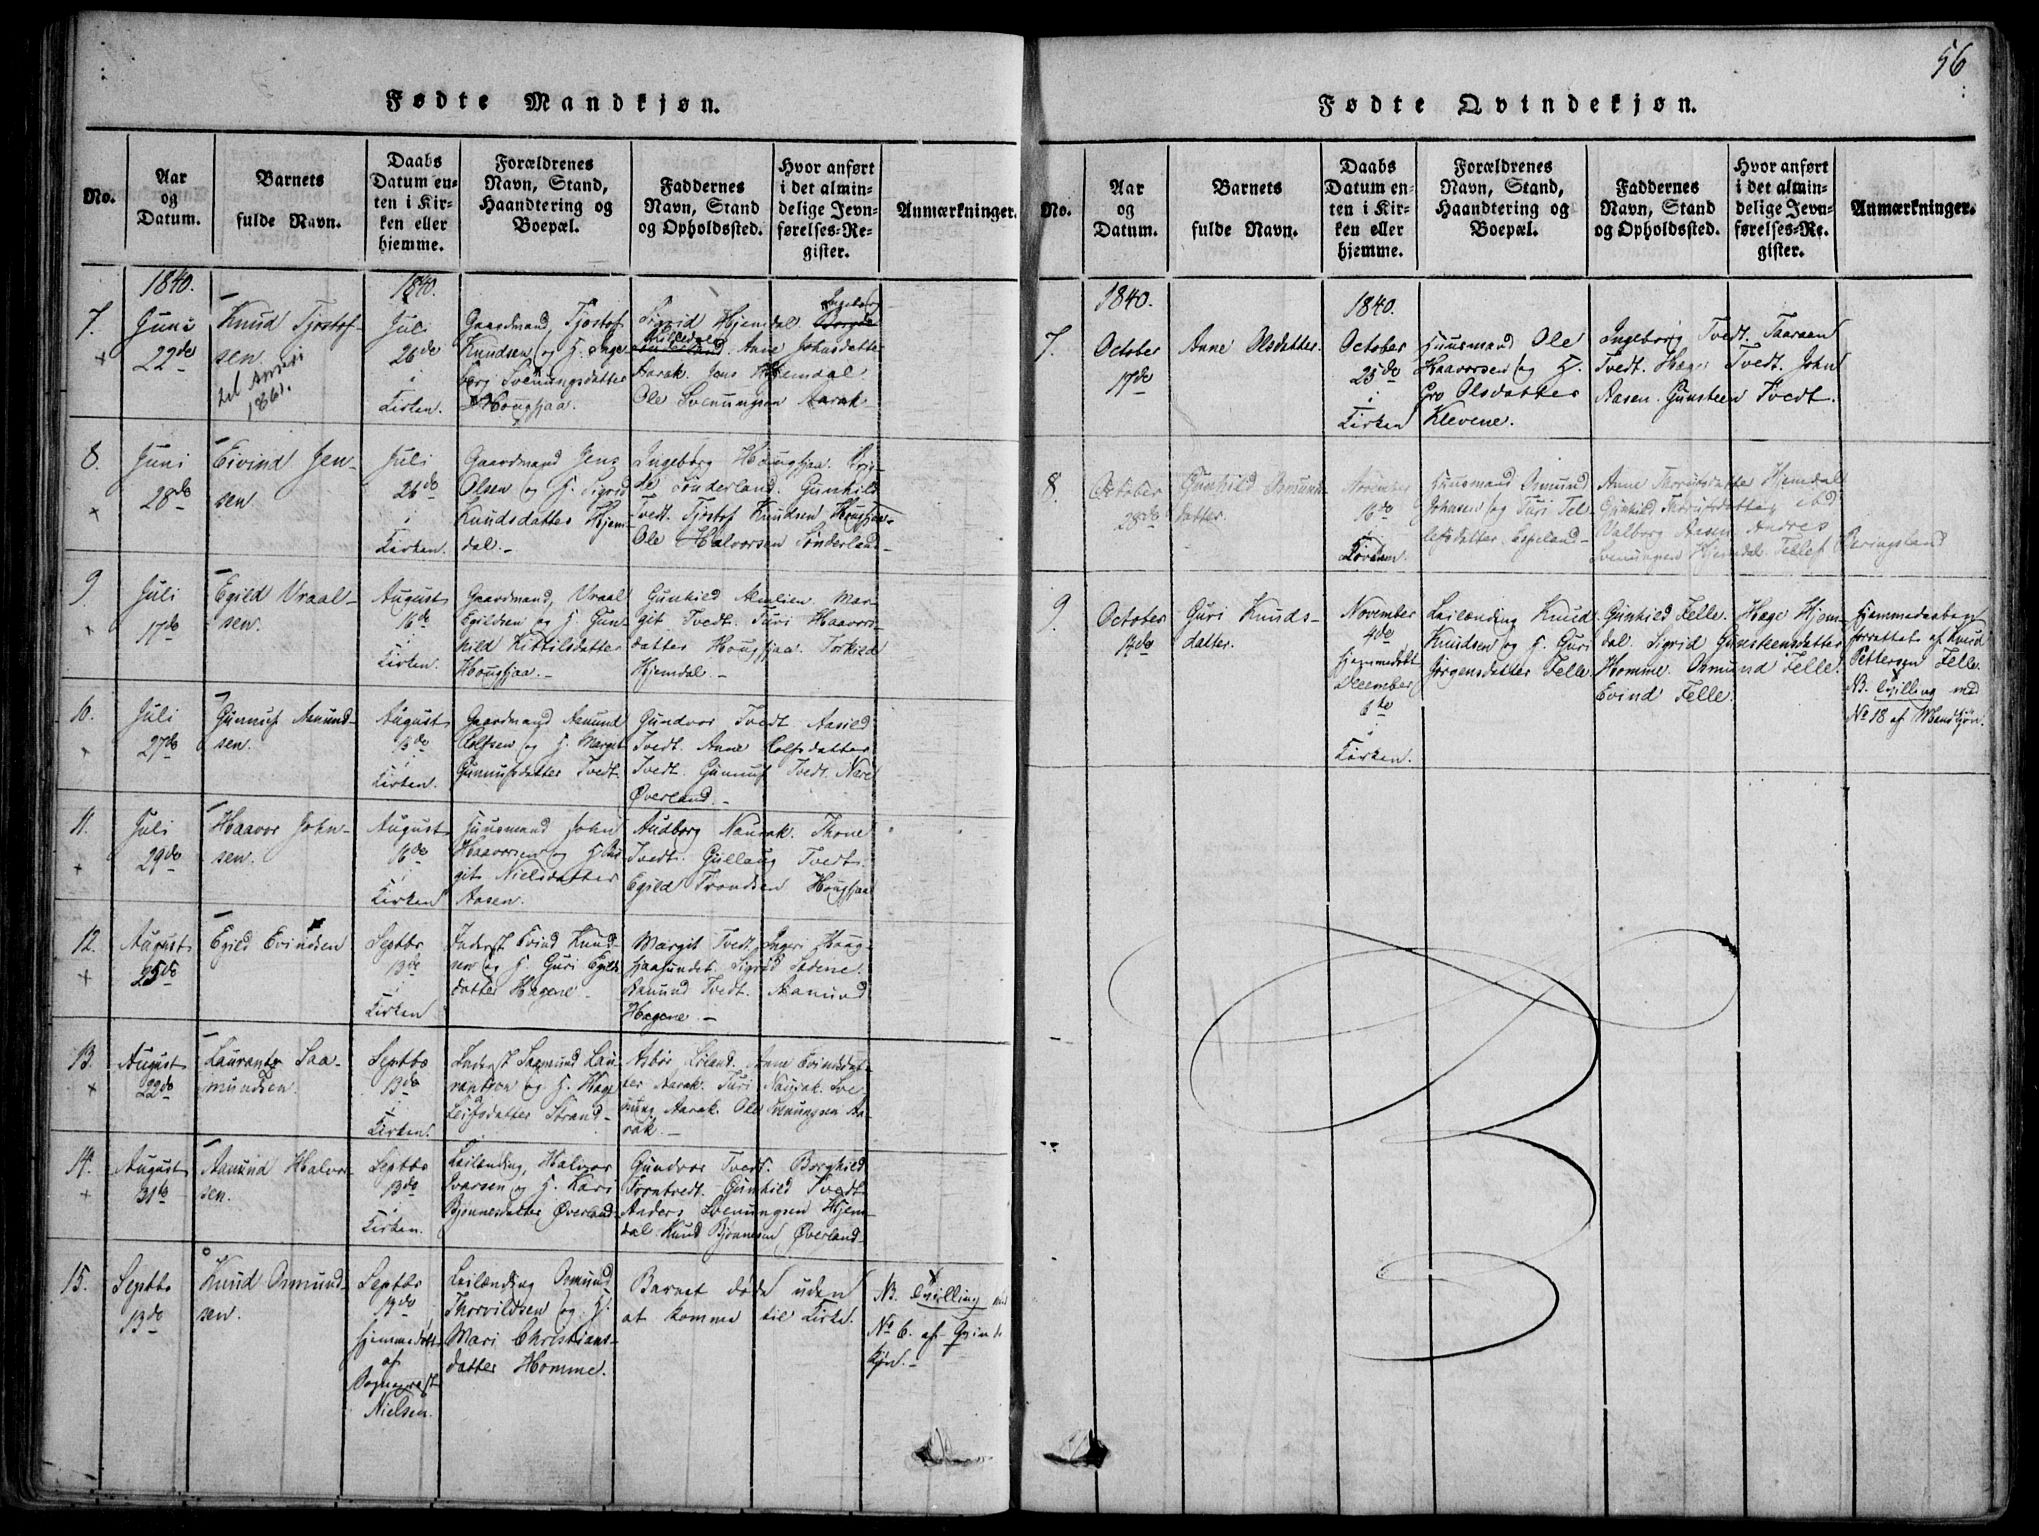 Fødte Mandkjøn.
No.
Aar
og
Datum.
Barnets
fulde Navn.
Daabs
Datum en-
ten i Kir-
ken eller
hjemme.
Forældrenes
Navn, Stand,
Haandtering og
Boepæl.
Faddernes
Navn, Stand
og Opholdssted.
Hvor anført
i det almin-
delige Jevn-
førelses-Re-
gister.
Anmærkninger.
1840.
1840.
7.
Juni
22de
Knud Tjostof-
sen.
til Ameri
1861.
Juli
26de
i
Kirken.
Gaardmand, Tjostof
Knudsen og H. Inge
borg Svenungsdatter
Hougsjaa.
Sigrid Hjemdal. Ingeborg
Anne Johnsdatter
Aarak. Jens Hjemdal.
Ole Svenungsen Aarak.
8.
Juni
28de
Eivind Jen-
sen.
Juli
26de
i
Kirken.
Gaardmand Jens
Olsen og H. Sigrid
Knudsdatter Hjem-
dal.-
Ingeborg Hougsjaa.
Sønderland. Gunhild
Tvedt. Tjostof Knudsen Hougsjaa.
Ole Halvorsen Sønderland.
9.
Juli
17de
Egild Vraal-
sen.
August
16de
i
Kirken.
Gaardmand, Vraal
Egildsen og H. Gun-
hild Kittilsdatter
Hougsjaa.-
Gunhild Mar-
git Tvedt. Turi Haavors-
datter Hougsjaa. Torkild
Hjemdal.-
10.
Juli
27de
Gunnuf Aamund-
sen.
August
16de
i
Kirken.
Gaardmand Aamund
Rolfsen og H. Margit
Gunnufsdatter Tvedt.
Gundvor Tvedt. Aasild
Tvedt. Anne Rolfsdatter
Tvedt. Gunnuf Tvedt. Nere
Øverland.-
11.
Juli
29de
Haavor John-
sen.
August
16de
i
Kirken
Huusmand John
Haavorsen og H.
git Nielsdatter
Aasen.
Audborg Naurak. Thone
Tvedt. Gullaug Tvedt.
Egild Trondsen Hougsjaa
12.
August
25de
Egild Evindsen
Septbr
13de
i
Kirken
Inderst Evind Knud-
sen og H. Guri Egilds
datter Hægene.
Margit Tvedt. Ingeri Houg-
sjaasundet. Sigrid
Aamund Tvedt. Aamund
Hægene.-
13.
August
22de
Laurants Saa-
mundsen.
Septbr
13de
i
Kirken.
Inderst Saamund Lau-
rantson og H. Hæge
Leifsdatter Strand-
Anne Evindsdat-
ter Aarak. Turi Naurak. Sve
nung Aarak. Ole Svenungsen Aa-
rak.-
14.
August
31te
Aamund Halvor-
sen.
Septbr
13de
i
Kirken.
Leilænding, Halvor
Ivarsen og H. Kari
Bjønnesdatter Øverland.
Gundvor Tvedt. Borghild
Forntvedt. Gunhild Tvedt
Anders Svenungsen Hjem-
dal. Knud Bjønnesen Øverland.
15.
Septbr
13de
Knud Osmund-
sen.
Septbr
17de
hjemmedøbt
af
Sognepræst
Nielsen.
Leilænding Osmund
Thorvildsen og H.
Mari Christians-
datter Homme.
Barnet døde uden
at komme til Kirke.
NB. Tvilling med
No 6. af Qvinde
Kjøn.-
56
Fødte Qvindekjøn.
No.
Aar
og
Datum.
Barnets
fulde Navn.
Daabs
Datum en-
ten i Kir-
ken eller
hjemme.
Forældrenes
Navn, Stand,
Haandtering og
Boepæl.
Faddernes
Navn, Stand
og Opholdssted.
Hvor anført
i det almin-
delige Jevn-
førelses-Re-
gister.
Anmærkninger.
1840.
1840.
7.
October
17de
Anne Olsdatter.
October
25de
i
Kirken
Huusmand Ole
Haavorsen og H.
Gro Olsdatter
Klevene.
Ingeborg Tvedt. Tharaen
Tvedt. Hæge Tvedt. John
Aasen. Gunsteen Tvedt.
8.
October
28de
Gunhild Osmunds
datter.
November
16de
i
Kirken.
Huusmand Osmund
Johnsen og Turi Tel
lefsdatter Espeland-
Anne Thorufsdatter Hjemdal.
Gunhild Thorufsdatter ibd
Valborg Aasen Andres
Svenungsen Hjemdal. Tellef Beringsland
9.
October
14de
Guri Knuds-
datter.
November
4de
hjemmedøbt
December
6te
i
Kirken.
Leilænding Knud
Knudsen og H. Guri
Jørgensdatter Felle
Gunhild Felle. Hæge Hjem-
dal. Sigrid Gunsteensdatter
Homme. Osmund Felle.
Evind Felle.
Hjemmedaaben
forrettet af Knud
Pettersen Felle.
NB. Tvilling med
No 18 af Mandkjøn.